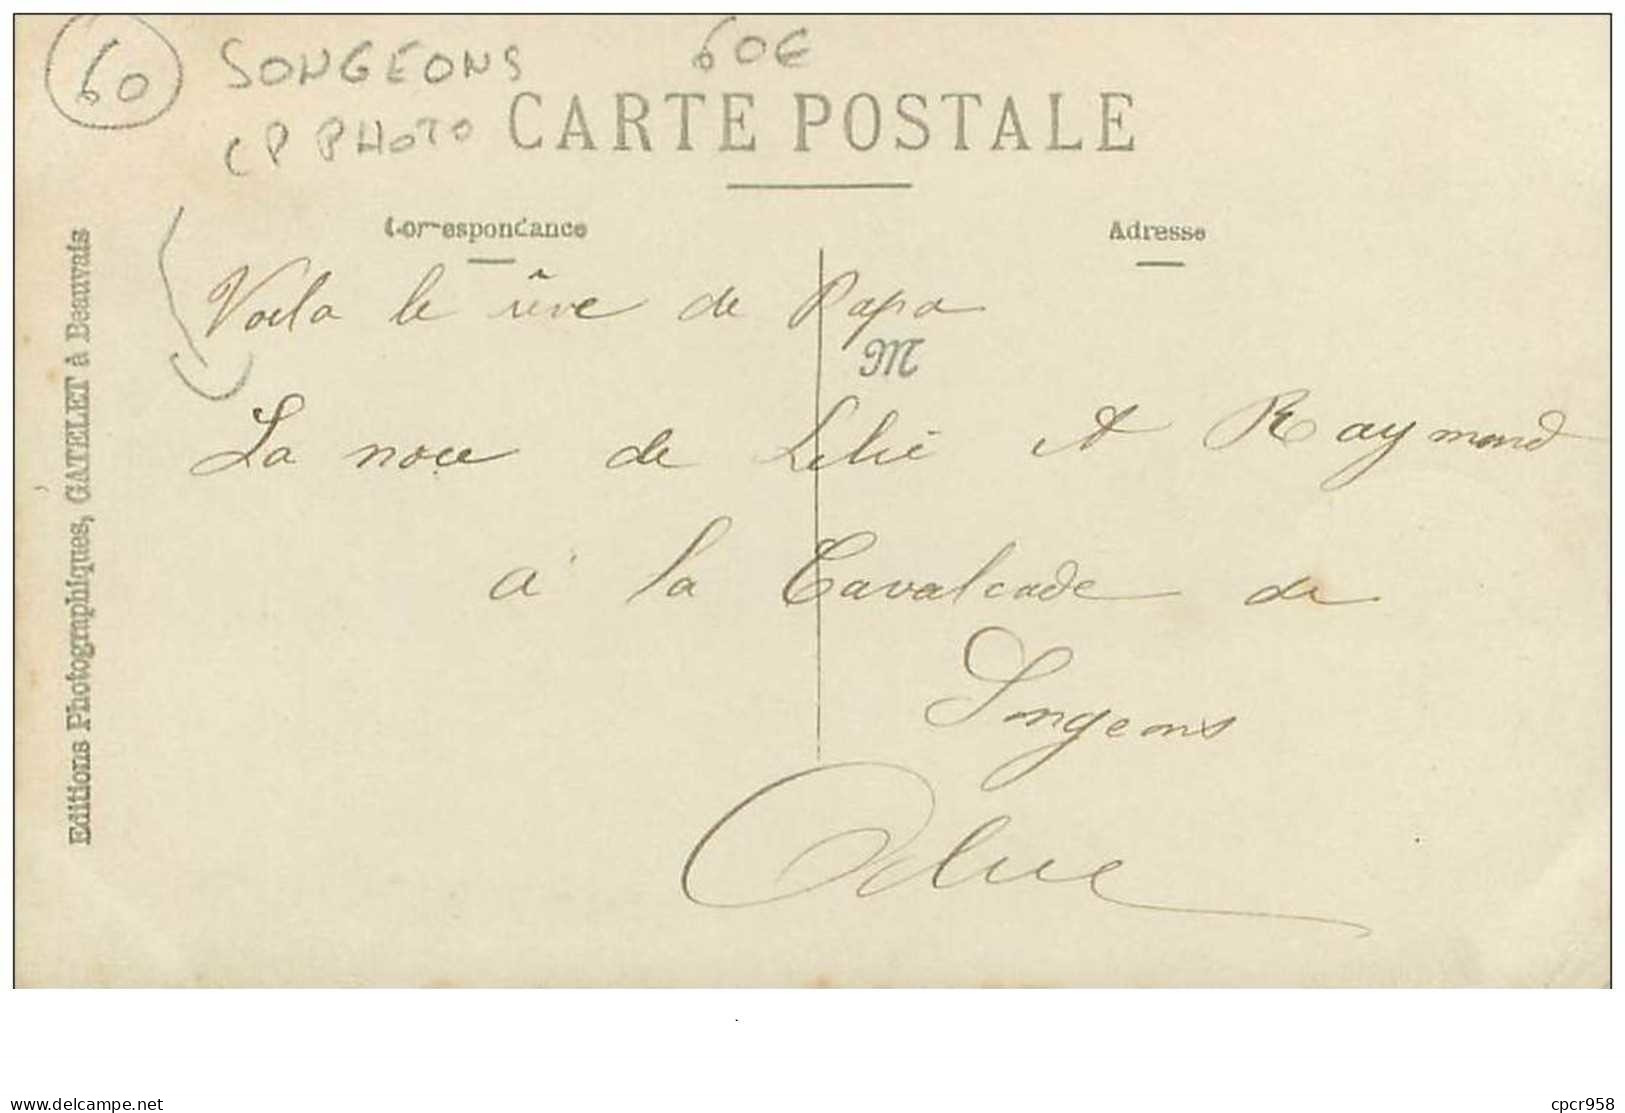 60 SONGEONS 60€
CP PHOTO CARTE POSTALE
Correspondance
Adresse
Editions Photographiques, GATELET à Beauvais
Voila le rêve de Papa
M
La noce de et Raymond
à la Cavalcade de
Songeons
www.delcampe.net
cpcr958